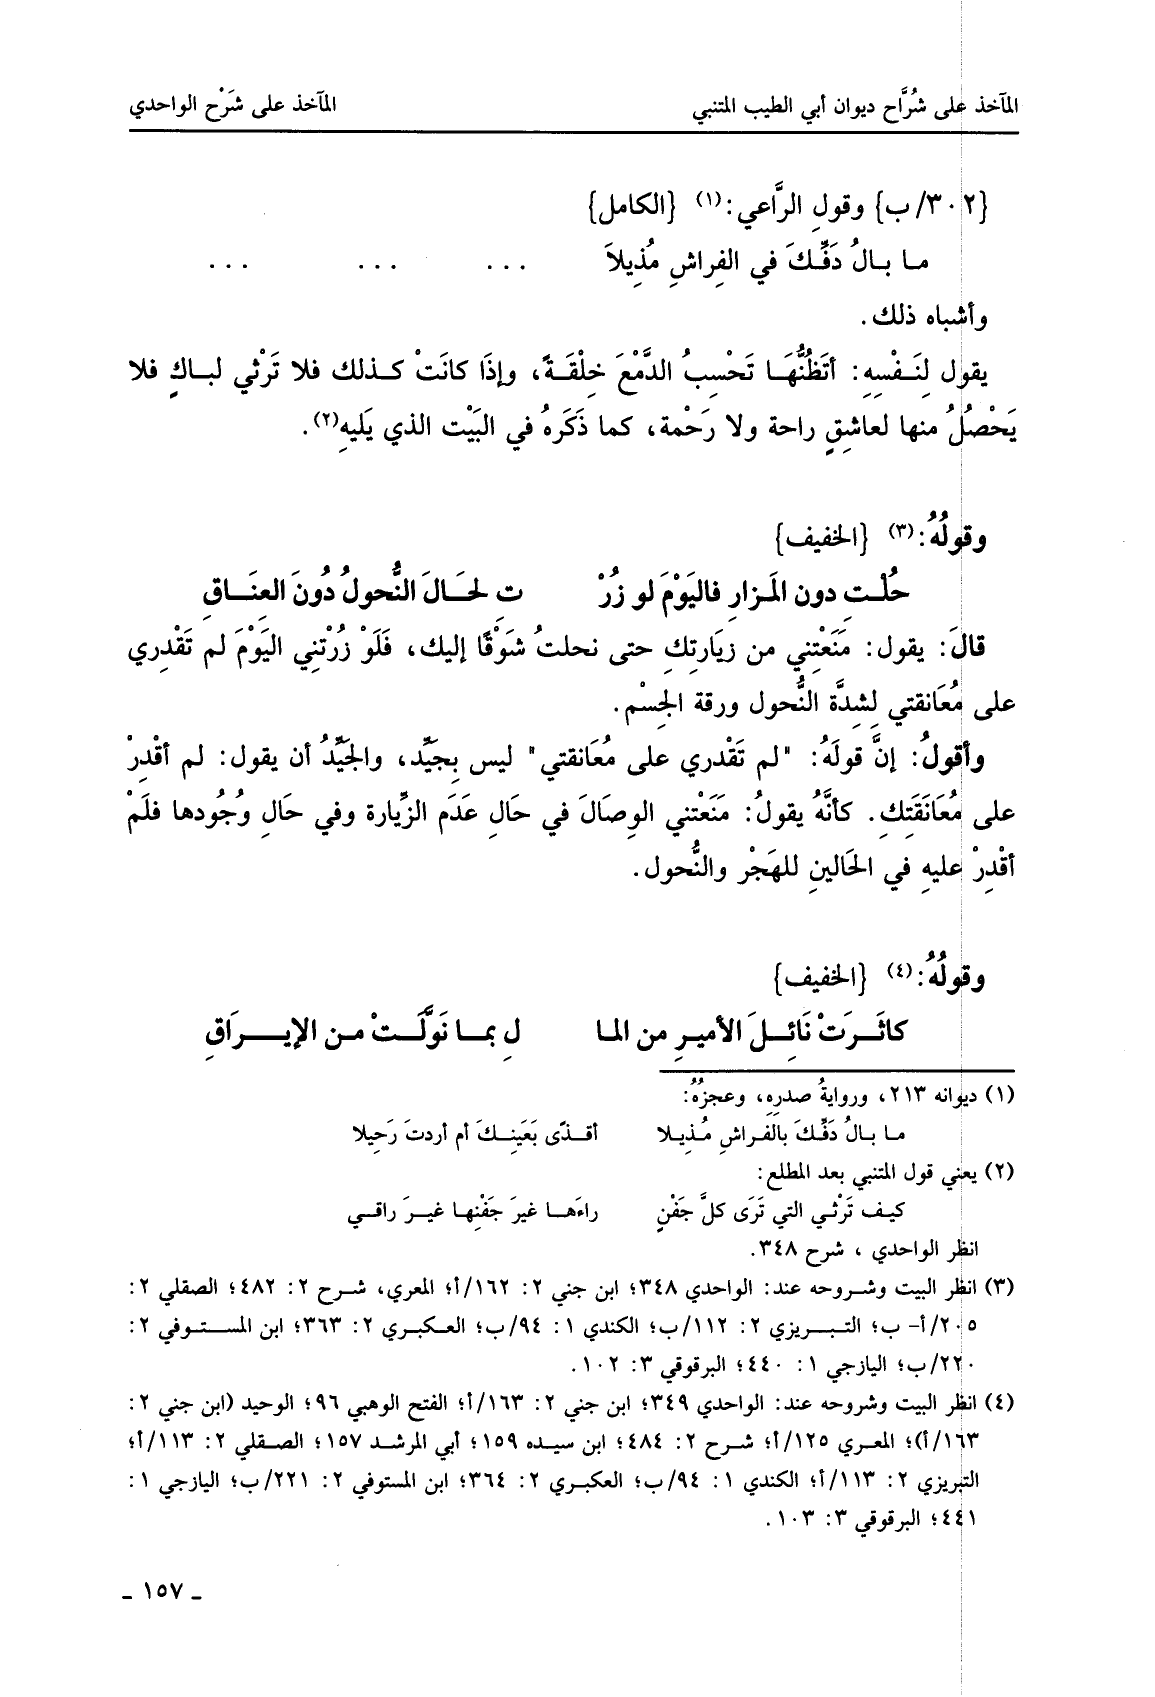 المآخذ على شُرَّاح ديوان أبي الطيب المتنبي المآخذ على شَرْح الواحدي
{٣٠٢/ ب} وقولِ الرَّاعي:(١) {الكامل}
ما بـالُ دَفِّـكَ في الفِراشِ مُذِيلاَ ... ... ...
وأشباه ذلك.
يقول لِنَـفْسِهِ: أتَظُنُّهَـا تَحْسِبُ الدَّمْعَ خِلْقَـةً، وإذَا كانَتْ كـذلك فلا تَرْثي لبـاكٍ فلا
يَحْصُلُ منها لعاشِقٍ راحة ولا رَحْمة، كما ذَكَرَهُ في البَيْت الذي يَليهِ(٢).
وقولُهُ:(٣) {الخفيف}
حُلْـتِ دون المَـزارِ فاليَوْمَ لو زُرْ تِ لحَـالَ النُّحولُ دُونَ العِنَـاقِ
قالَ: يقول: مَنَعْتِني من زِيَارتِكِ حتى نحلتُ شَوْقًا إليك، فَلَوْ زُرْتِني اليَوْمَ لم تَقْدِري
على مُعَانقتي لشِدَّة النُّحول ورقة الجِسْم.
وأقولُ: إنَّ قولَهُ: "لم تَقْدري على مُعَانقتي" ليس بِجَيِّد، والجَيِّدُ أن يقول: لم أقْدِرْ
على مُعَانَقَتِكِ. كأنَّهُ يقولُ: مَنَعْتني الوِصَالَ في حَالِ عَدَم الزِّيارة وفي حَالِ وُجُودها فلَمْ
أقْدِرْ عليهِ في الحَالينِ للهَجْر والنُّحول.
وقولُهُ:(٤) {الخفيف}
كاثَـرَتْ نَائِـلَ الأميـرِ من المـا لِ بمـا نَوَّلَـتْ مـن الإيـرَاقِ
(١) ديوانه ٢١٣، وروايةُ صدرِهِ، وعجزُهُ:
ما بـالُ دَفِّـكَ بالفِـراشِ مُـذِيـلا أقـذًى بَعَينِـكَ أم أردتَ رَحِيلا
(٢) يعني قول المتنبي بعد المطلع:
كيـف تَرْثـي التي تَرَى كلَّ جَفْنٍ راءَهـا غيرَ جَفْنِهـا غيـرَ راقـي
انظر الواحدي ، شرح ٣٤٨.
(٣) انظر البيت وشـروحه عند: الواحدي ٣٤٨؛ ابن جني ٢: ١٦٢/أ؛ المعري، شـرح ٢: ٤٨٢؛ الصقلي ٢:
٢٠٥/أ- ب؛ التبـريزي ٢: ١١٢/ب؛ الكندي ١: ٩٤/ب؛ العـكبري ٢: ٣٦٣؛ ابن المسـتـوفي ٢:
٢٢٠/ب؛ اليازجي ١: ٤٤٠؛ البرقوقي ٣: ١٠٢.
(٤) انظر البيت وشروحه عند: الواحدي ٣٤٩؛ ابن جني ٢: ١٦٣/أ؛ الفتح الوهبي ٩٦؛ الوحيد (ابن جني ٢:
١٦٣/أ)؛ المعـري ١٢٥/أ؛ شـرح ٢: ٤٨٤؛ ابن سيده ١٥٩؛ أبي المرشـد ١٥٧؛ الصـقلي ٢: ١١٣/أ؛
التبريزي ٢: ١١٣/أ؛ الكندي ١: ٩٤/ب؛ العكبـري ٢: ٣٦٤؛ ابن المستوفي ٢: ٢٢١/ب؛ اليازجي ١:
٤٤١؛ البرقوقي ٣: ١٠٣.
ـ ١٥٧ ـ